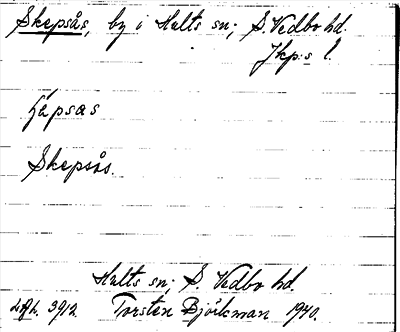 Skepsås, by i Hults sn; S. Vedbo hd.
Jkp:s l.
Skepsås.
Hults sn; S. Vedbo hd.
3912. Torsten Björkman 1940.